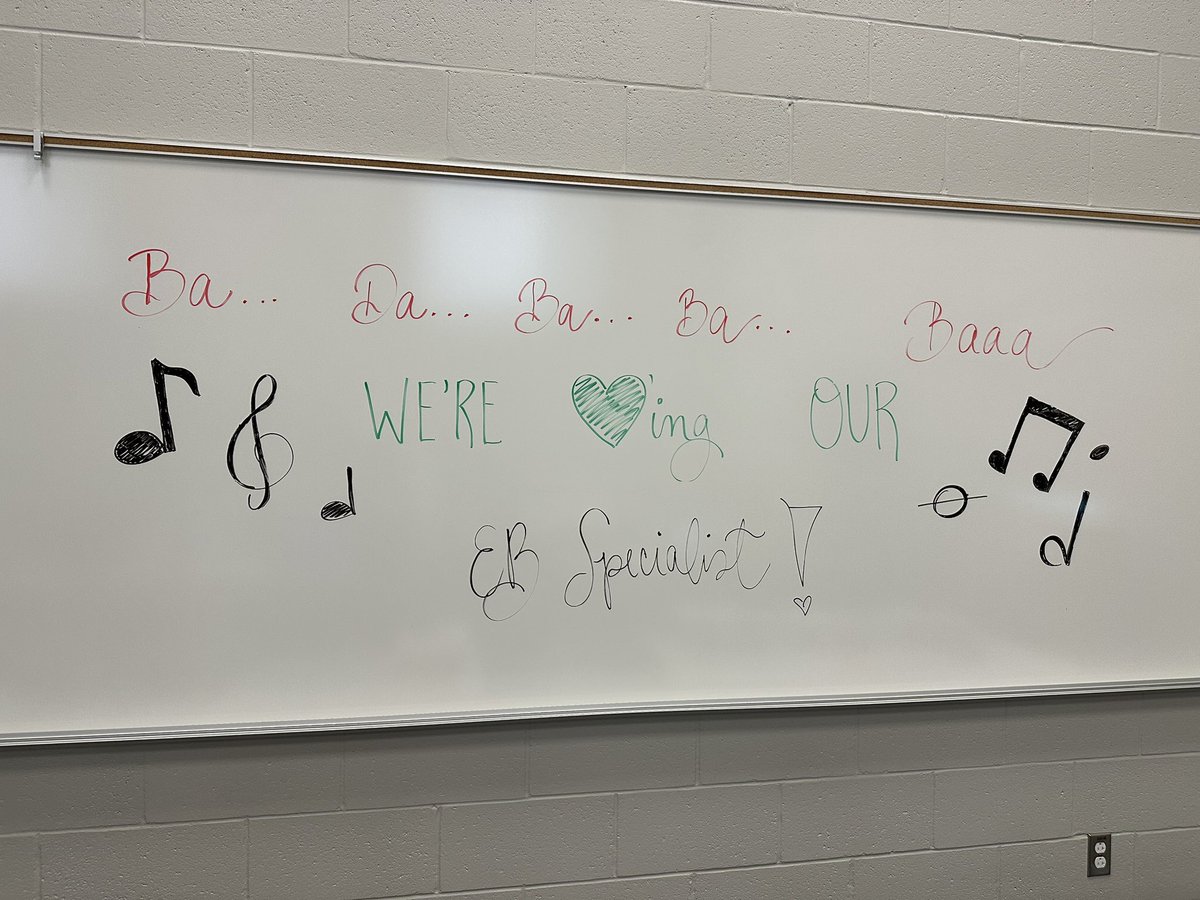 Ba... Da... Ba... Ba... Baaa
WE'RE ♥'ing OUR
EB Specialist!